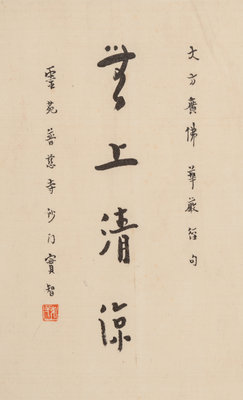 大方廣佛華嚴經句
無上清涼
苑普慈寺沙门實智